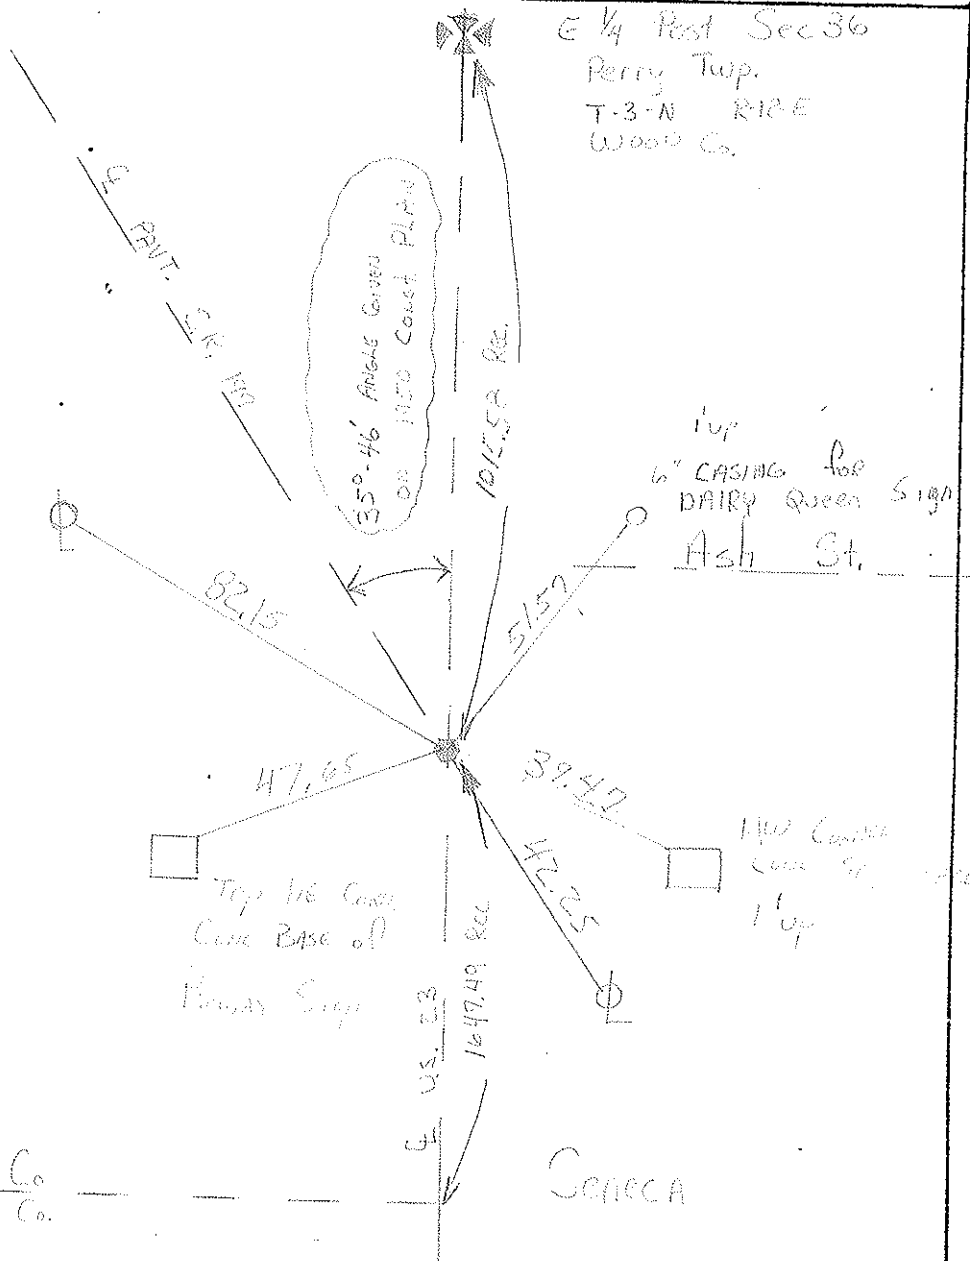 E 1/4 Post Sec 36
Perry Twp.
T-3-N R-12-E
WOOD Co.
℄ PAVT.
35°-46' ANGLE GIVEN
ON 1950 CONST PLAN
1015.58 REC.
1' up
6" CASING for
DAIRY Queen Sign
Ash St.
82.15
51.57
47.65
39.42
42.25
Top NE
CONC BASE of
Sign
NW Corner
1' up
℄ U.S. 23
1647.49 REC
Co
Co.
SENECA